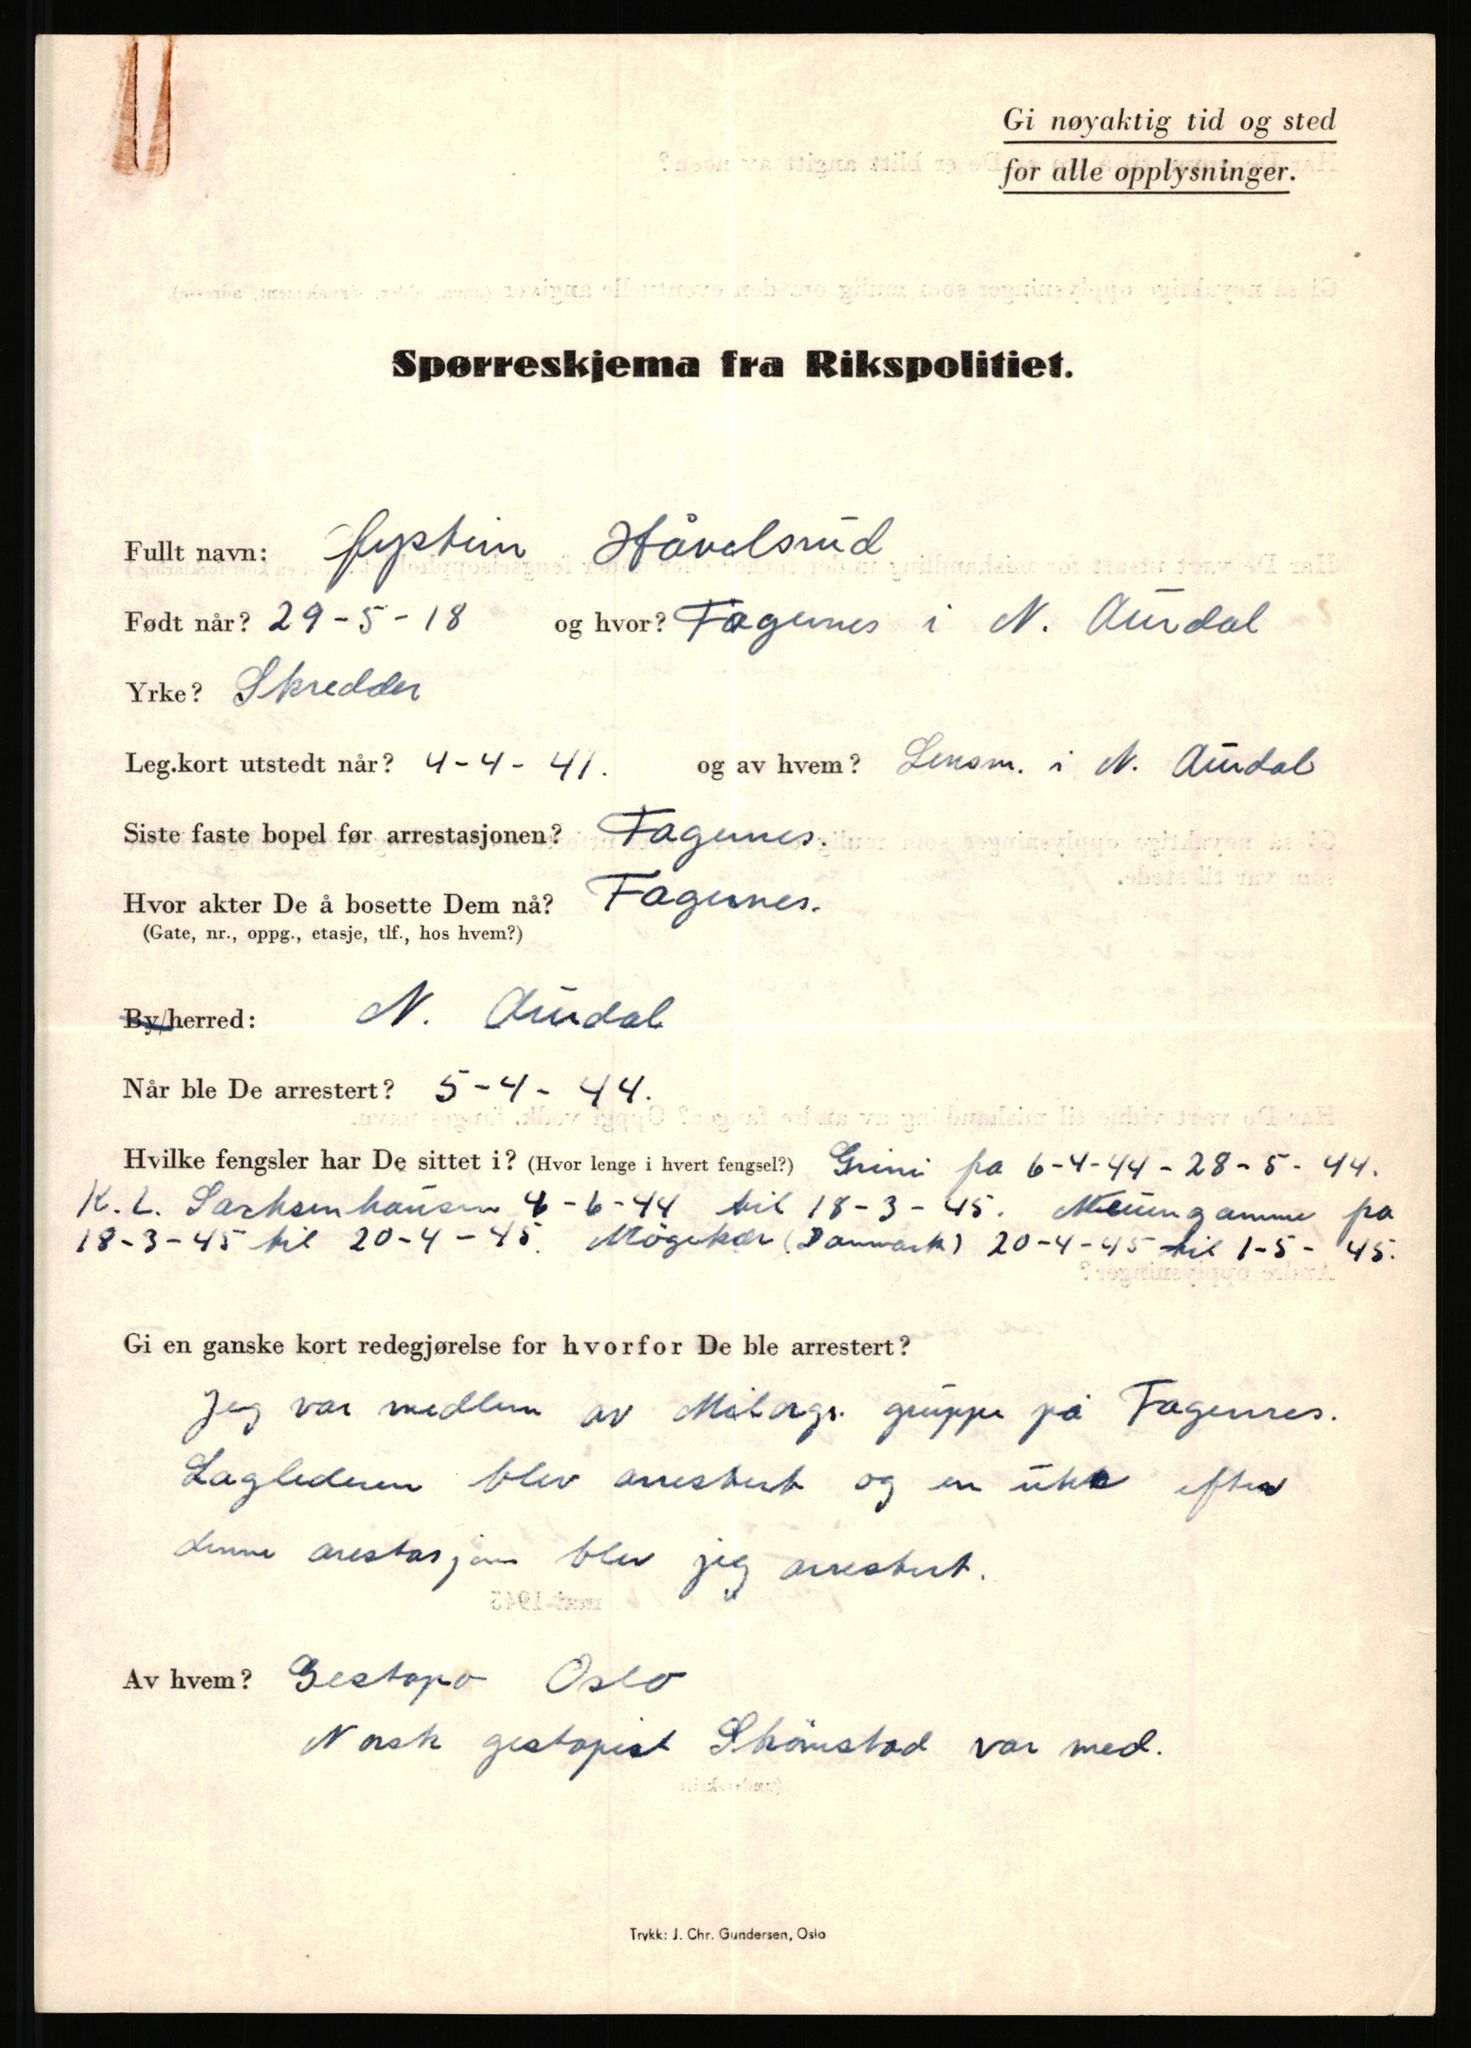 Gi nøyaktig tid og sted
for alle opplysninger.
Spørreskjema fra Rikspolitiet.
Fullt navn: Øystein Håvelsrud
Født når? 29-5-18 og hvor? Fagernes i N. Aurdal
Yrke? Skredder
Leg.kort utstedt når? 4-4-41. og av hvem? Lensm. i N. Aurdal
Siste faste bopel før arrestasjonen? Fagernes.
Hvor akter De å bosette Dem nå? Fagernes.
(Gate, nr., oppg., etasje, tlf., hos hvem?)
By/herred: N. Aurdal
Når ble De arrestert? 5-4-44.
Hvilke fengsler har De sittet i? (Hvor lenge i hvert fengsel?) Grini fra 6-4-44-28-5-44.
K. L. Sachsenhausen 4-6-44 til 18-3-45. Neuengamme fra
18-3-45 til 20-4-45. Møgekær (Danmark) 20-4-45 til 1-5-45.
Gi en ganske kort redegjørelse for hvorfor De ble arrestert?
Jeg var medlem av Milorgr. gruppe på Fagernes.
Laglederen blev arrestert og en uke efter
denne arestasjon blev jeg arrestert.
Av hvem? Gestapo Oslo
Norsk gestapist var med.
Trykk: J. Chr. Gundersen, Oslo